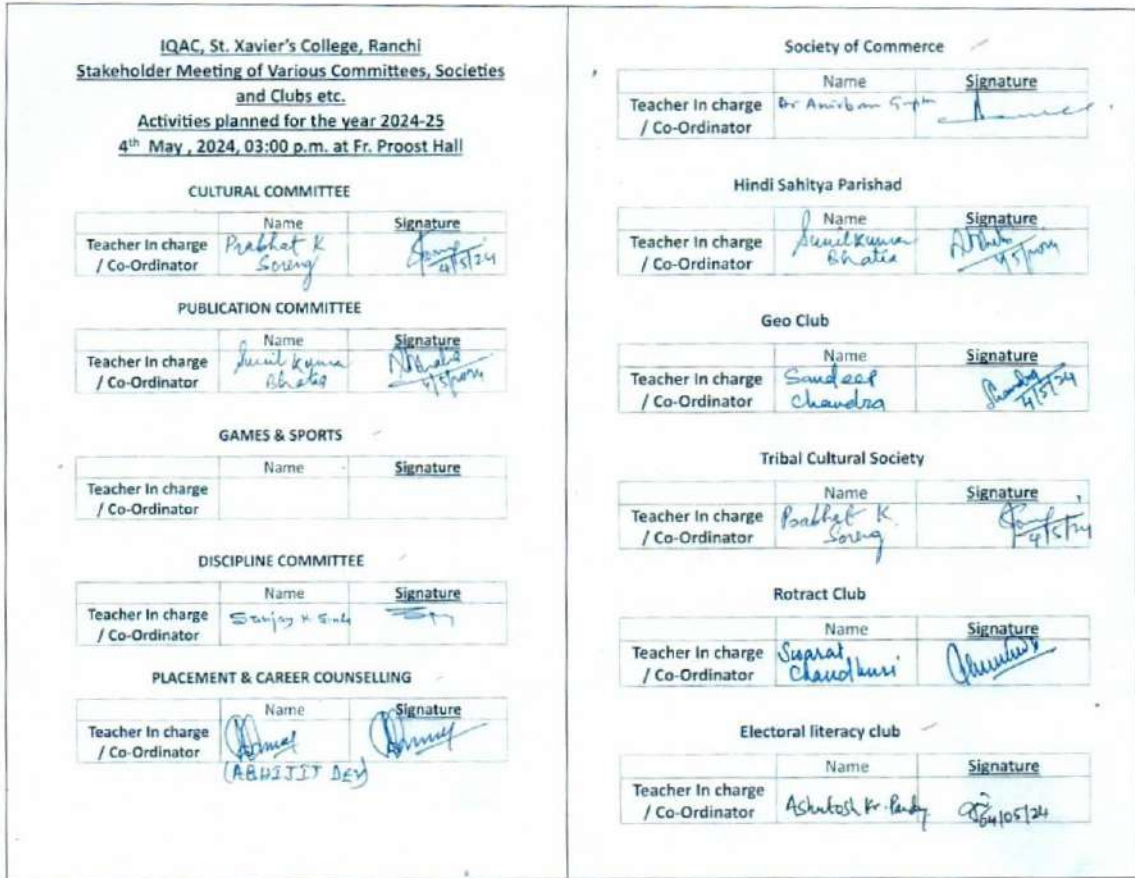 IQAC, St. Xavier's College, Ranchi
Stakeholder Meeting of Various Committees, Societies
and Clubs etc.
Activities planned for the year 2024-25
4th May , 2024, 03:00 p.m. at Fr. Proost Hall
CULTURAL COMMITTEE
Name Signature
Teacher In charge Prabhat K
/ Co-Ordinator Soreng 4/5/24
PUBLICATION COMMITTEE
Name Signature
Teacher In charge Sunil Kumar
/ Co-Ordinator Bhatia 4/5/2024
GAMES & SPORTS
Name Signature
Teacher In charge
/ Co-Ordinator
DISCIPLINE COMMITTEE
Name Signature
Teacher In charge Sanjay K Sinha
/ Co-Ordinator
PLACEMENT & CAREER COUNSELLING
Name Signature
Teacher In charge
/ Co-Ordinator
(ABHIJIT DEY)
Society of Commerce
Name Signature
Teacher In charge Dr Anirban Gupta
/ Co-Ordinator
Hindi Sahitya Parishad
Name Signature
Teacher In charge Sunil Kumar
/ Co-Ordinator Bhatia 4/5/2024
Geo Club
Name Signature
Teacher In charge Sandeep Chandra
/ Co-Ordinator Chandra 4/5/24
Tribal Cultural Society
Name Signature
Teacher In charge Prabhat K.
/ Co-Ordinator Soreng 4/5/24
Rotract Club
Name Signature
Teacher In charge Swarat
/ Co-Ordinator Chaudhuri
Electoral literacy club
Name Signature
Teacher In charge
/ Co-Ordinator Ashutosh Kr. Pandy 04/05/24